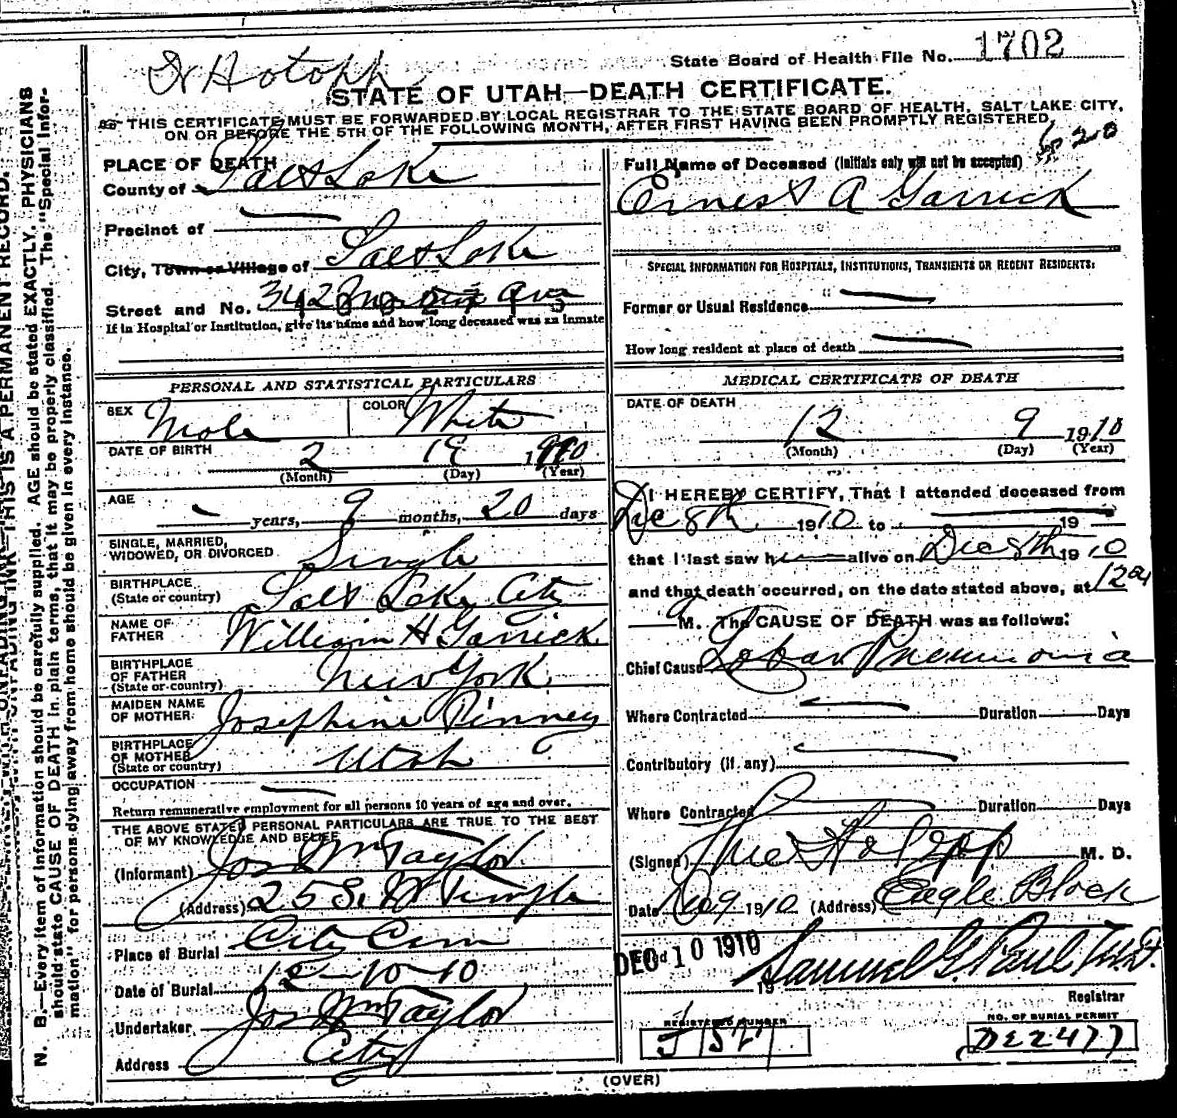 State Board of Health File No. 1702
STATE OF UTAH—DEATH CERTIFICATE.
THIS CERTIFICATE MUST BE FORWARDED BY LOCAL REGISTRAR TO THE STATE BOARD OF HEALTH, SALT LAKE CITY,
ON OR BEFORE THE 5TH OF THE FOLLOWING MONTH, AFTER FIRST HAVING BEEN PROMPTLY REGISTERED.
N. B.—Every item of information should be carefully supplied. AGE should be stated EXACTLY. PHYSICIANS
should state CAUSE OF DEATH in plain terms, that it may be properly classified. The "Special Infor-
mation" for persons dying away from home should be given in every instance.
THIS IS A PERMANENT RECORD.
PLACE OF DEATH
County of Salt Lake
Precinct of
City, Town or Village of Salt Lake
Street and No. 342 Ave
If in Hospital or Institution, give its name and how long deceased was an inmate
PERSONAL AND STATISTICAL PARTICULARS
SEX Male COLOR White
DATE OF BIRTH 2 19 1910
(Month) (Day) (Year)
AGE — years, 9 months, 20 days
SINGLE, MARRIED,
WIDOWED, OR DIVORCED Single
BIRTHPLACE
(State or country) Salt Lake City
NAME OF
FATHER William H Garrick
BIRTHPLACE
OF FATHER
(State or country) New York
MAIDEN NAME
OF MOTHER Josephine Pinney
BIRTHPLACE
OF MOTHER
(State or country) Utah
OCCUPATION —
Return remunerative employment for all persons 10 years of age and over.
THE ABOVE STATED PERSONAL PARTICULARS ARE TRUE TO THE BEST
OF MY KNOWLEDGE AND BELIEF
(Informant) Jos Wm Taylor
(Address) 25 So W Temple
Place of Burial City Cem
Date of Burial 12-10-10
Undertaker Jos Wm Taylor
Address City
Full Name of Deceased (Initials only will not be accepted)
Ernest A Garrick
SPECIAL INFORMATION FOR HOSPITALS, INSTITUTIONS, TRANSIENTS OR RECENT RESIDENTS:
Former or Usual Residence —
How long resident at place of death —
MEDICAL CERTIFICATE OF DEATH
DATE OF DEATH
12 9 1910
(Month) (Day) (Year)
I HEREBY CERTIFY, That I attended deceased from
Dec 8th 1910 to — 19 —
that I last saw h alive on Dec 8th 1910
and that death occurred, on the date stated above, at 12
a M. The CAUSE OF DEATH was as follows:
Chief Cause Lobar Pneumonia
Where Contracted — Duration Days
Contributory (if any) —
Where Contracted Duration Days
(Signed) Hotopp M. D.
Date Dec 9 1910 (Address) Eagle Block
DEC 10 1910
Samuel G. Paul M.D.
19 Registrar
REGISTERED NUMBER
NO. OF BURIAL PERMIT
J 1527
DE2477
(OVER)